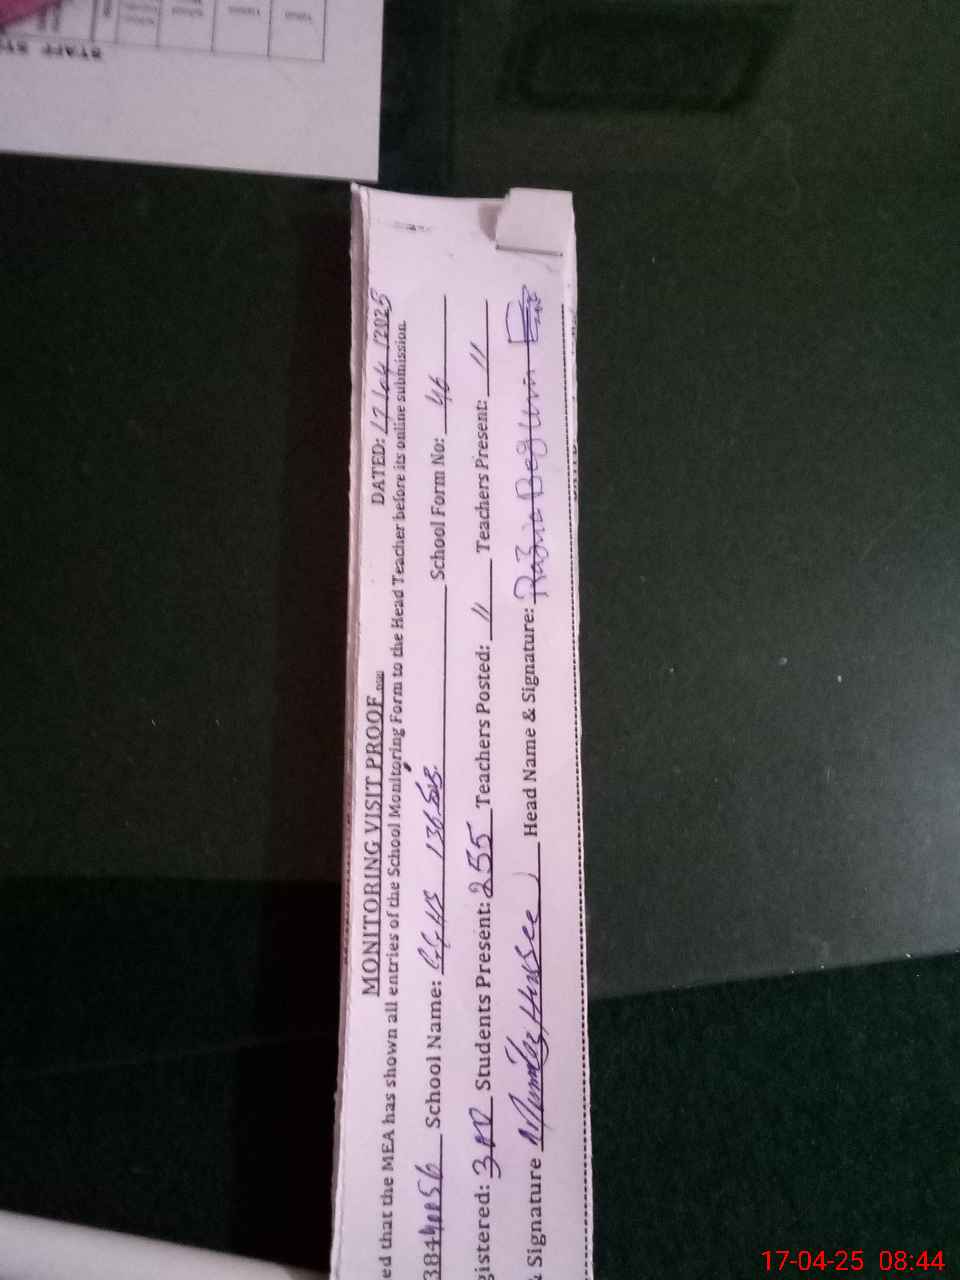 STAFF
MONITORING VISIT PROOF DATED: 17/04/2025
ed that the MEA has shown all entries of the School Monitoring Form to the Head Teacher before its online submission.
38440056 School Name: GGHS 136 SB. School Form No: 46
gistered: Students Present: 255 Teachers Posted: 11 Teachers Present: 11
& Signature Head Name & Signature: Razia Begum
17-04-25 08:44